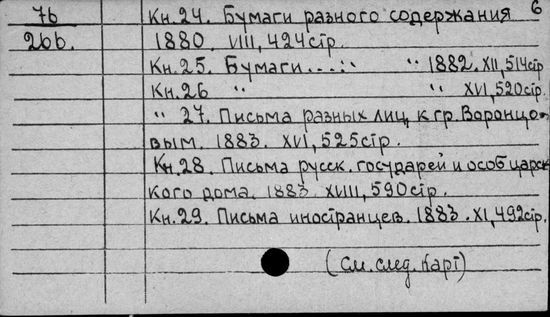 7б Кн. 24. Бумаги разного содержания 6
2бб. 1880. VIII, 424стр.
Кн. 25. Бумаги...:- " 1882. XII, 514стр
Кн. 26 " " XVI, 520стр.
" 27. Письма разных лиц, к гр. Воронцо-
вым. 1883. XVI, 525стр.
Кн. 28. Письма русск. государей и особ царск
кого дома. 1883. XVIII, 590стр.
Кн. 29. Письма иностранцев. 1883. XI, 492стр.
(см. след. карт)